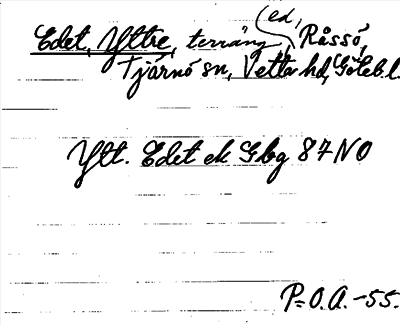 Edet, Yttre, terräng (ed, Råssö,
Tjärnö sn, Vette hd, Göteb.l.
Ytt. Edet ek Gbg 87 NO
P-O.A. -55.